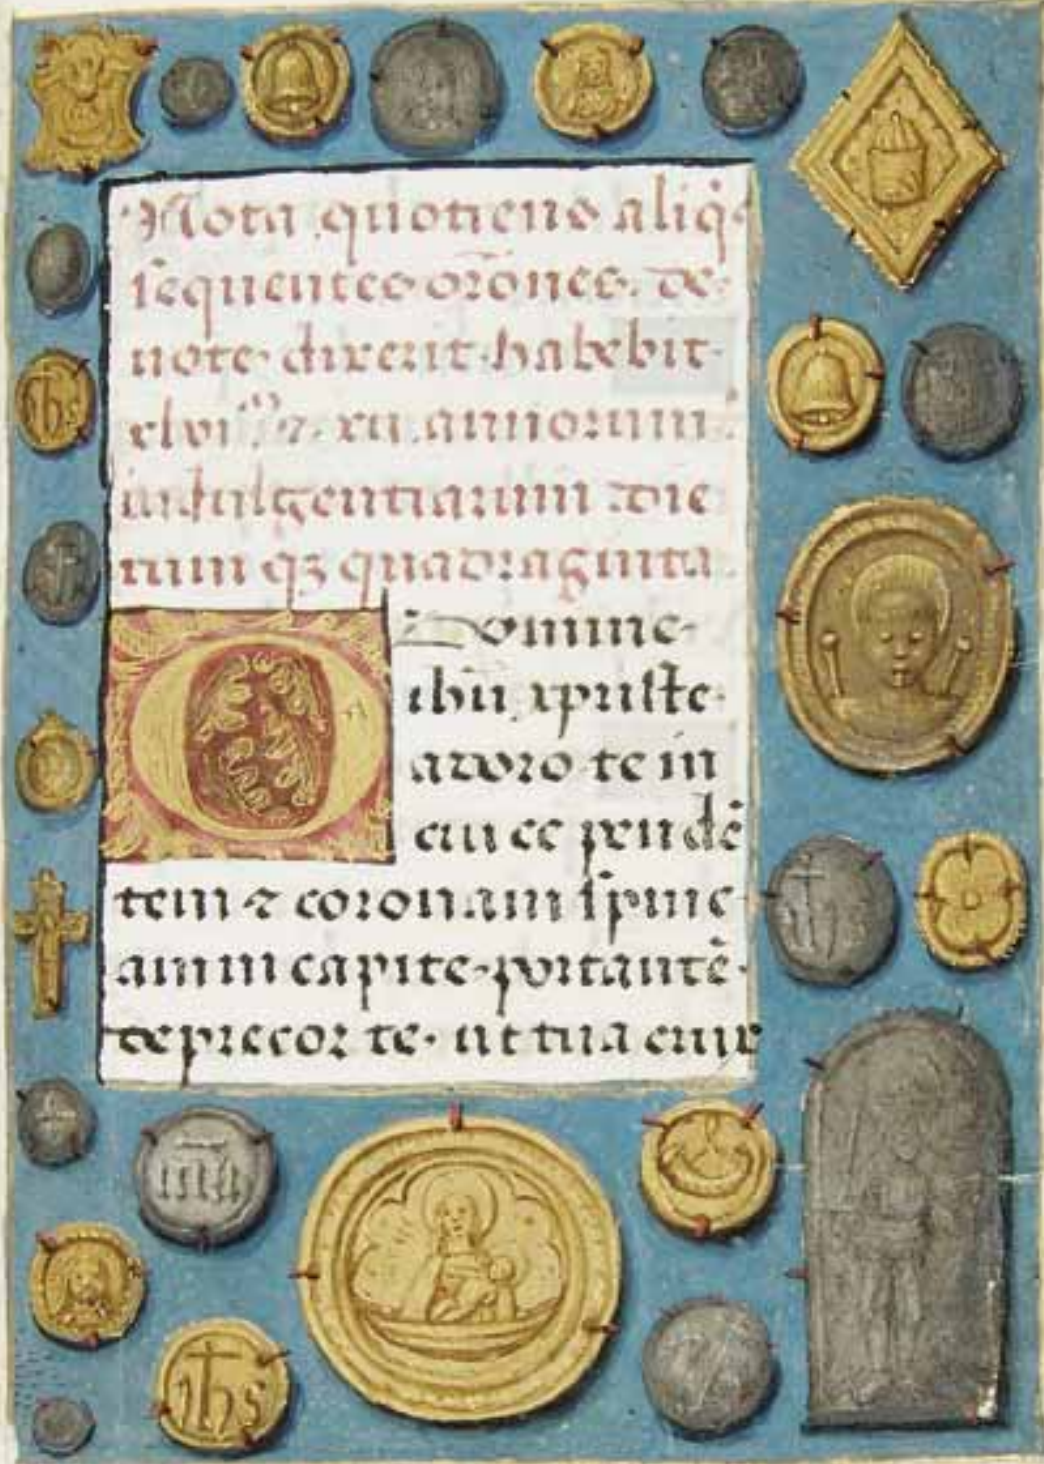 Nota quotiens aliq̇s
sequentes or̄ones de
uote dixerit habebit
xlvi.ᵐ ⁊ xii annorum
indulgentiarum die
rum qꝫ quadraginta
O Domine
ihū xpriste
adoro te in
cruce pendē
tem ⁊ coronam spine
am in capite portantē
deprecor te ut tua crux
ihs
ihs